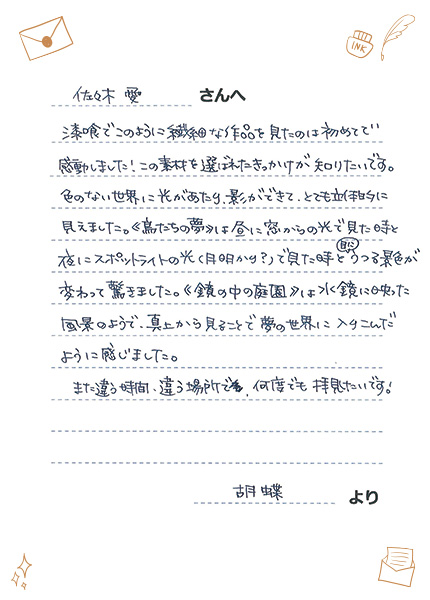 INK
佐々木 愛 さんへ
漆喰でこのように繊細な作品を見たのは初めてで
感動しました！この素材を選ばれたきっかけが知りたいです。
色のない世界に光があたり、影ができて、とても立体的に
見えました。《鳥たちの夢》は昼に窓からの光で見た時と
夜にスポットライトの光（月明かり？）で見た時とうつる景色が
変わって驚きました。《鏡の中の庭園》は水鏡に映った
風景のようで、真上から見ることで夢の世界に入りこんだ
ように感じました。
また違う時間、違う場所でも、何度でも拝見たいです！
胡蝶 より